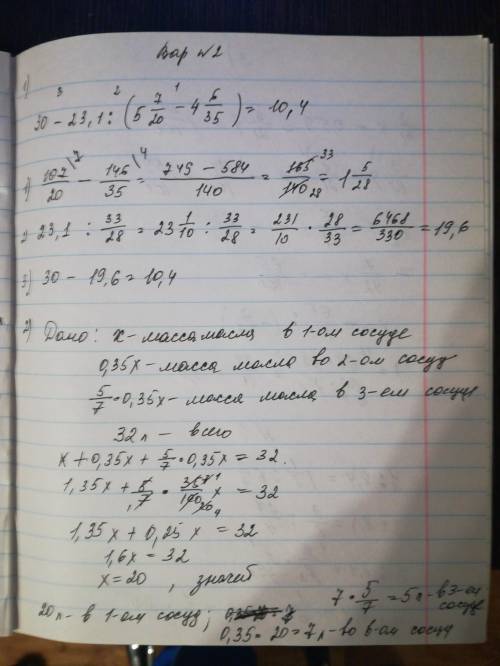 Вар №2
1)
3 2 1
30 - 23,1 : (5 7/20 - 4 6/35) = 10,4
1) 107/20 \7 - 146/35 \4 = 749 - 584 / 140 = 165 33 / 140 28 = 1 5/28
2 23,1 : 33/28 = 23 1/10 : 33/28 = 231/10 · 28/33 = 6468/330 = 19,6
3) 30 - 19,6 = 10,4
2) Дано: х - масса масла в 1-ом сосуде
0,35х - масса масла во 2-ом сосуд
5/7 · 0,35х - масса масла в 3-ем сосуде
32 л - всего
х + 0,35х + 5/7 · 0,35х = 32.
1,35х + 5/7 · 35/100 х = 32
1,35х + 0,25 х = 32
1,6х = 32
х = 20 , значит
7 · 5/7 = 5л - в 3-ом сосуде
20л - в 1-ом сосуд;
0,35 · 20 = 7л - во в-ом сосуд